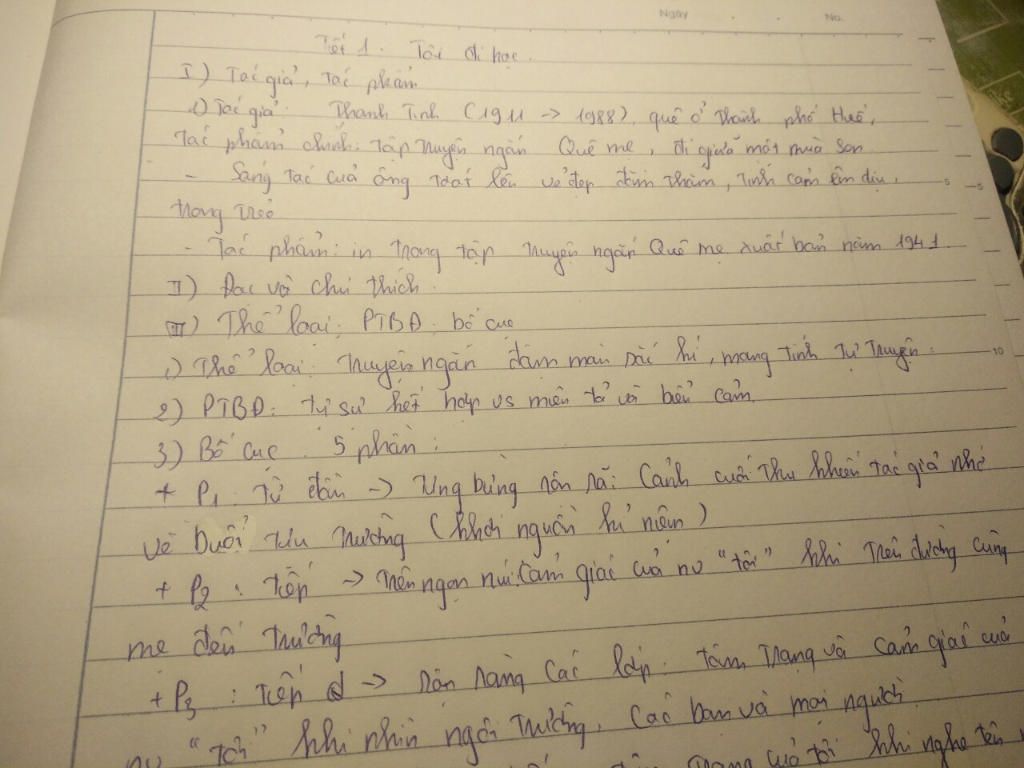 Ngày . . No.
Tiết 1. Tôi đi học.
I) Tác giả, Tác phẩm
1) Tác giả: Thanh Tịnh (1911 -> 1988), quê ở Thành phố Huế,
Tác phẩm chính: Tập truyện ngắn Quê mẹ, đi giữa một mùa sen
- Sáng tác của ông toát lên vẻ đẹp đằm thắm, tình cảm êm dịu,
trong trẻo
- Tác phẩm: in trong tập truyện ngắn Quê mẹ xuất bản năm 1941.
II) Đọc và chú thích.
III) Thể loại: PTBĐ: bố cục
1) Thể loại: Truyện ngắn đậm màu sắc kí, mang tính tự truyện.
2) PTBĐ: tự sự kết hợp vs miêu tả và biểu cảm.
3) Bố cục: 5 phần:
+ P1: Từ đầu -> Tưng bừng rộn rã: Cảnh cuối thu khiến tác giả nhớ
về buổi tựu trường (khơi nguồn kỉ niệm)
+ P2: tiếp -> trên ngọn núi: Cảm giác của nv "tôi" khi trên đường cùng
mẹ đến trường
+ P3: tiếp -> rộn ràng các lớp: tâm trạng và cảm giác của
nv "tôi" khi nhìn ngôi trường, các bạn và mọi người.
trạng của tôi khi nghe tên
5
5
10